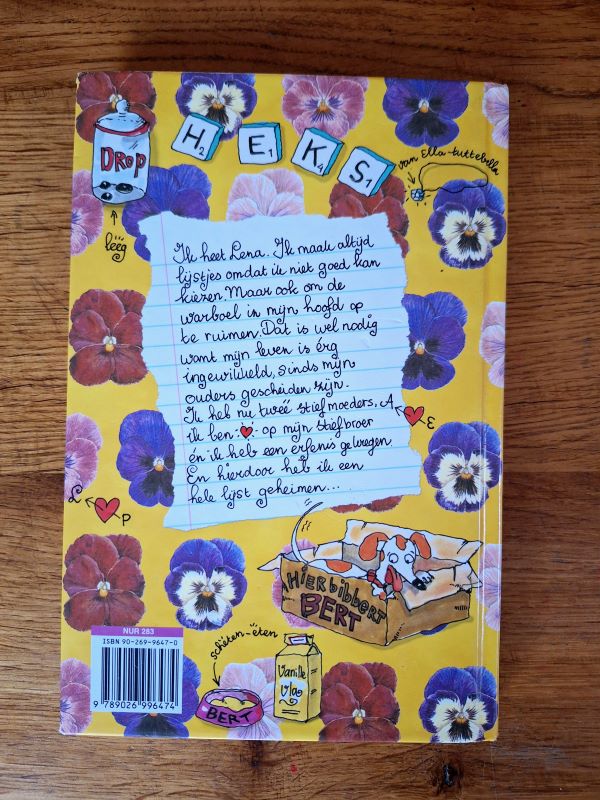 DROP
leeg
H2 E1 K4 S1
van Ella-tuttebella
Ik heet Lena. Ik maak altijd
lijstjes omdat ik niet goed kan
kiezen. Maar ook om de
warboel in mijn hoofd op
te ruimen. Dat is wel nodig
want mijn leven is érg
ingewikkeld, sinds mijn
ouders gescheiden zijn.
Ik heb nu twéé stiefmoeders,
ik ben ♥ op mijn stiefbroer
én ik heb een erfenis gekregen
En hierdoor heb ik een
hele lijst geheimen...
A ♥ E
L ♥ P
HIER bibbert
BERT
NUR 283
ISBN 90-269-9647-0
9 789026 996474
schéten-eten
Vanille
vla
BERT